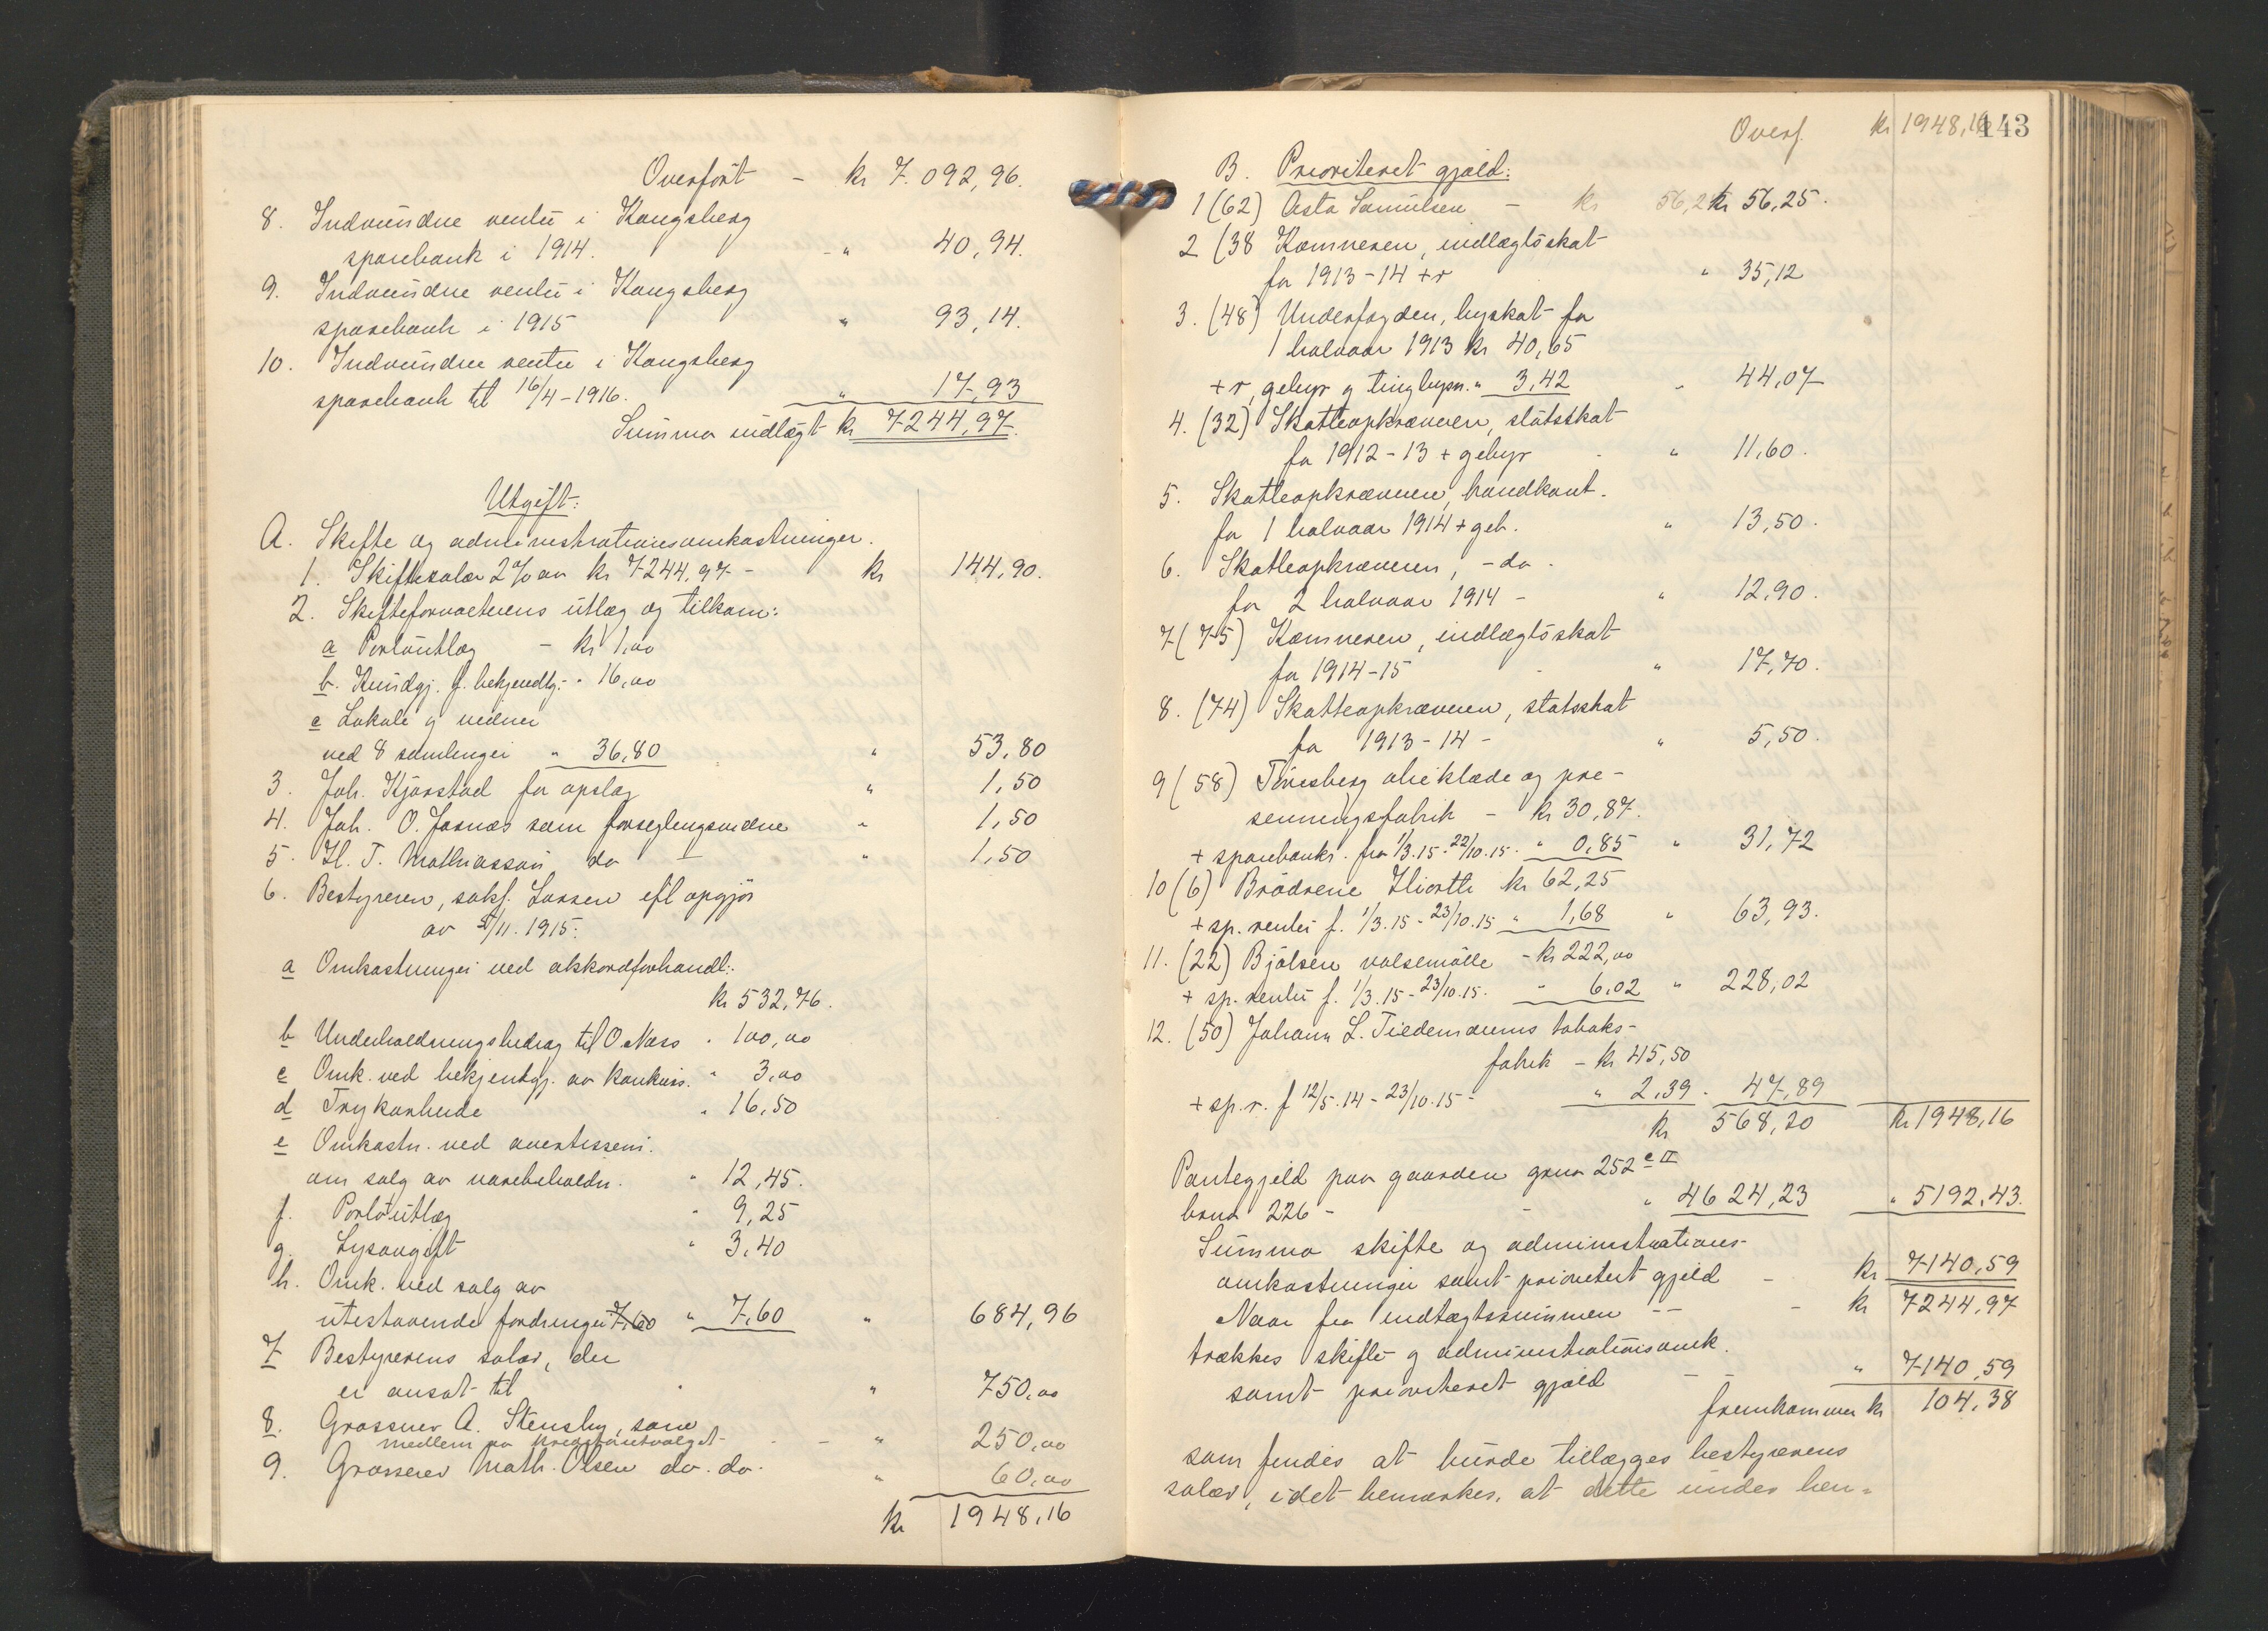 Overført - kr 7.092,96.
8. Indvundne renter i Kongsberg
sparebank i 1914. - " 40,94.
9. Indvundne renter i Kongsberg
sparebank i 1915 " 93,14.
10. Indvundne renter i Kongsberg
sparebank til 16/4-1916. " 17,93
Summa indtægt kr 7244,97.
Utgift:
A. Skifte og administrationsomkostninger.
1. Skiftesalær 2% av kr 7244,97 - kr 144,90.
2. Skifteforvalterens utlæg og tilkom:
a Portoutlæg - kr 1,00
b. Kundgj. f. bekjendtg. - " 16,00
c Lokale og vidner
ved 8 samlinger " 36,80 " 53,80
3. Joh. Kjørstad for opslag " 1,50
4. Joh. O. Josnæs som forseglingsvidne " 1,50
5. H. T. Mathiassen do - " 1,50
6. Bestyreren, sakf. Larsen efl opgjør
av /11.1915:
a Omkostninger ved akkordforhandl:.
kr 532,76.
b Underholdningsbidrag til O. Næss " 100,00
c Omk. ved bekjentgj. av konkurs. " 3,00
d Trykarbeide " 16,50
e Omkostn. ved avertissem.
om salg av varebeholdn. " 12,45.
f. Portoutlæg " 9,25
g. Lysavgift " 3,40
h. Omk. ved salg av
utestaaende fordringer 7,60 " 7,60 " 684,96
7 Bestyrerens salær, der
er ansat til " 750,00
8. Grosserer A. Stensby, som
medlem av kreditorutvalget - - " 250,00
9. Grosserer Math. Olsen do. do. " 60,00
kr 1948,16
Overf. kr 1948,16 143
B. Prioritert gjæld:
1 (62) Asta Samuelsen - kr 56,2 kr 56,25.
2 (38 Kæmneren, indtægtsskat
for 1913-14 + r " 35,12
3. (48) Underfogden, byskat for
1 halvaar 1913 kr 40,65
+ r, gebyr og tinglysn. " 3,42 " 44,07
4. (32) Skatteopkræveren, statsskat
for 1912-13 + gebyr - " 11,60.
5. Skatteopkræveren, brandkont.
for 1 halvaar 1914 + geb. " 13,50.
6. Skatteopkræveren, - do -
for 2 halvaar 1914 - " 12,90.
7 (75) Kæmneren, indtægtsskat
for 1914-15 - " 17,70.
8. (74) Skatteopkræveren, statsskat
for 1913-14 - " 5,50.
9 (58) Tønsberg oljeklæde og pre-
senningsfabrik - kr 30,87.
+ sparebankr. fra 1/3.15-22/10.15. " 0,85 " 31,72
10 (6) Brødrene Hiorth kr 62,25
+ sp. renter f. 1/3.15-23/10.15 " 1,68 " 63,93.
11. (22) Bjølsen valsemølle - kr 222,00
+ sp. renter f. 1/3.15-23/10.15. " 6.02 " 228,02
12. (50) Johann L. Tiedemanns tobaks-
fabrik - kr 45,50
+ sp. r. f 12/5.14-23/10.15 - " 2,39. 47,89
kr 568,20 kr 1948,16
Pantegjeld paa gaarden gnr 252 e II
brnr 226 - - " 4624,23 " 5192,43.
Summa skifte og administrations-
omkostninger samt prioritert gjeld - kr 7140,59
Naar fra indtægtssummen -- - kr 7244,97
trækkes skifte og administrationsomk.
samt prioritert gjæld - - " 7140,59
fremkommer kr 104,38
som findes at burde tillægges bestyrerens
salær, idet bemærkes, at dette under hen-